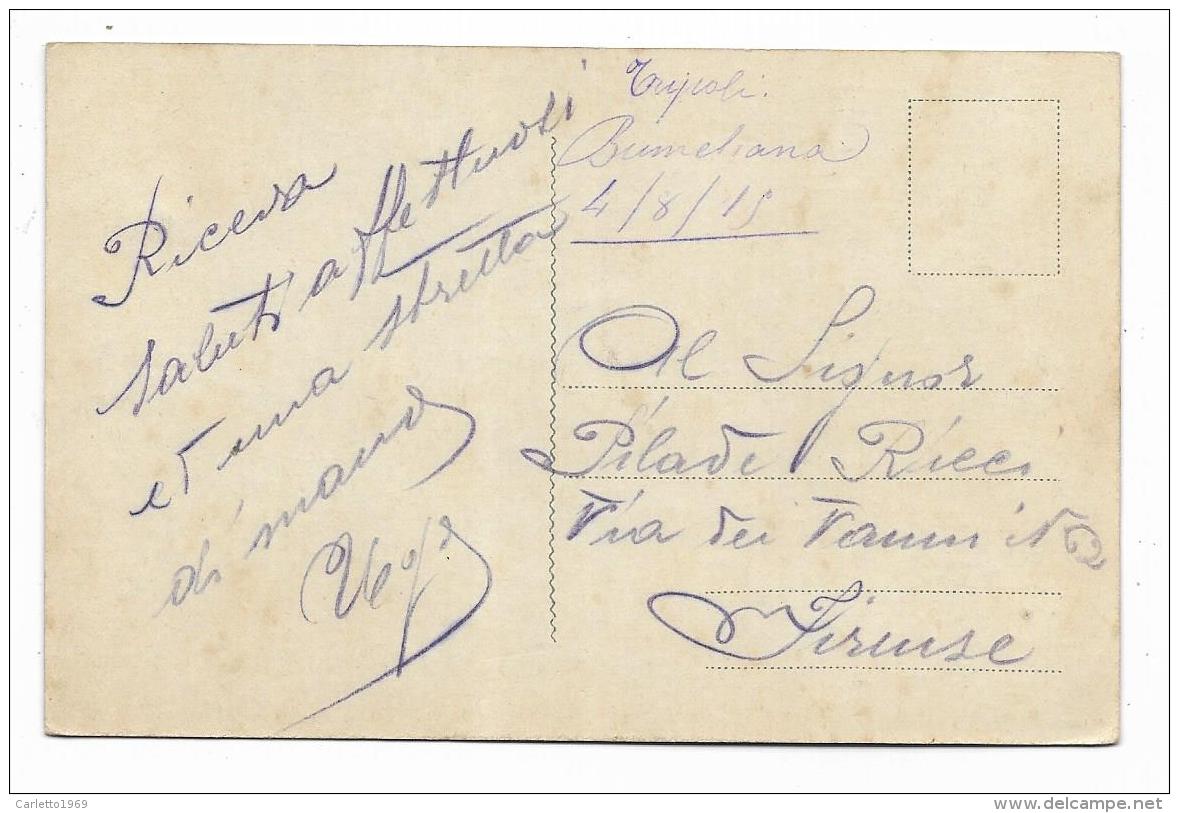 Tripoli.
Bumeliana
4/8/15
Riceva
saluti affettuosi
et una stretta
di mano
Ugo
Al Signor
Pilade Ricci
Via dei Vanni N 62
Firenze
Carletto1969
delcampe.net